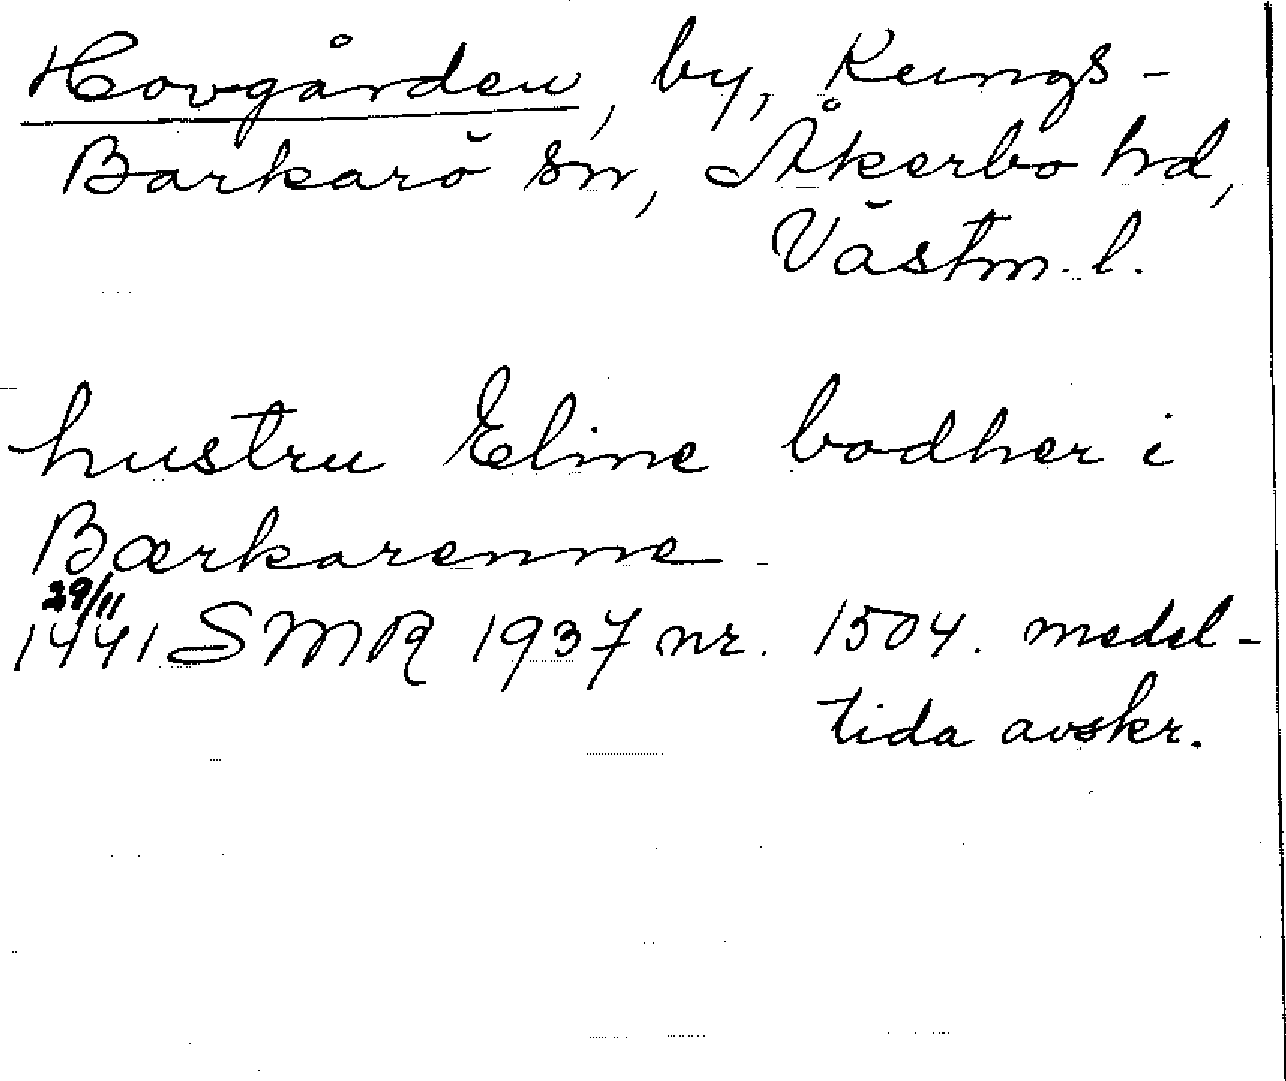 Hovgården, by, Kungs-
Barkarö sn, Åkerbo hd,
Västm. l.
hustru Eline bodher i
Bærkarenne
29/11
1441 SMR 1937 nr. 1504. medel-
tida avskr.